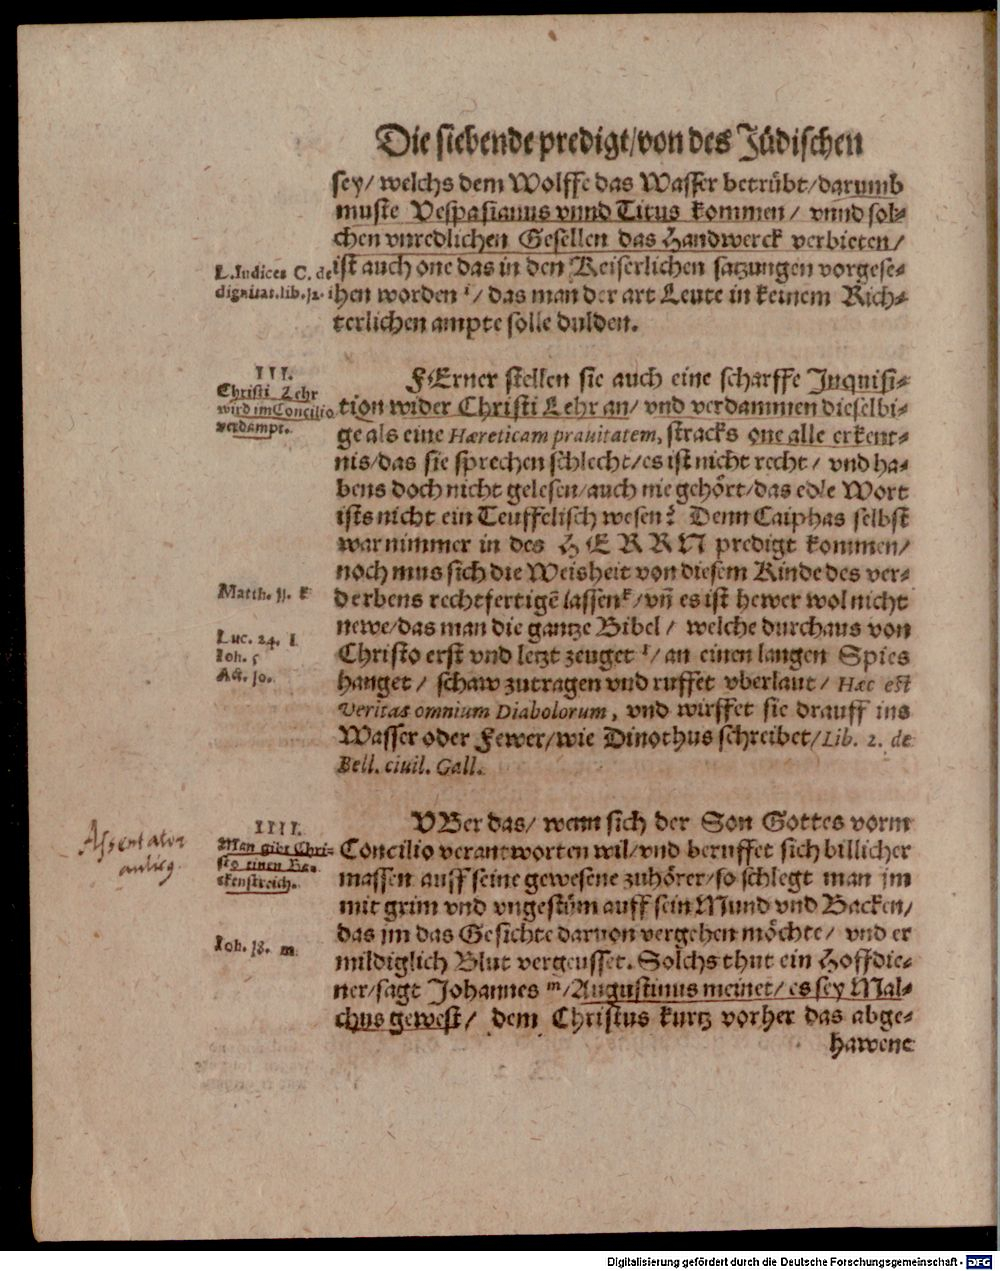 Die siebende predigt/von des Jüdischen
sey/ welchs dem Wolffe das Wasser betrübt/darumb
muste Vespasianus vnnd Titus kommen/ vnnd sol-
chen vnredlichen Gesellen das Handwerck verbieten/
L. Iudices C. de
dignitat. lib. 12. i
ist auch one das in den Keiserlichen satzungen vorgese-
hen worden i/ das man der art Leute in keinem Rich-
terlichen ampte solle dulden.
III.
Christi Lehr
wird im Concilio
verdampt.
FErner stellen sie auch eine scharffe Inquisi-
tion wider Christi Lehr an/ vnd verdammen dieselbi-
ge als eine Hæreticam prauitatem, stracks one alle erkent-
nis/das sie sprechen schlecht/es ist nicht recht/ vnd ha-
bens doch nicht gelesen/auch nie gehört/das edle Wort
ists nicht ein Teuffelisch wesen? Denn Caiphas selbst
war nimmer in des HERRN predigt kommen/
noch mus sich die Weisheit von diesem Kinde des ver-
Matth. 11. k
derbens rechtfertigē lassen k/ vñ es ist hewer wol nicht
newe/das man die gantze Bibel/ welche durchaus von
Luc. 24. l
Ioh. 5
Act. 10.
Christo erst vnd letzt zeuget l/ an einen langen Spies
hanget/ schaw zutragen vnd ruffet vberlaut/ Hæc est
Veritas omnium Diabolorum, vnd wirffet sie drauff ins
Wasser oder Fewer/wie Dinothus schreibet/Lib. 2. de
Bell. ciuil. Gall.
IIII.
Man gibt Chri-
sto einen Ba-
ckenstreich.
Assentator
aulicq.
VBer das/ wenn sich der Son Gottes vorm
Concilio verantworten wil/vnd beruffet sich billicher
massen auff seine gewesene zuhörer/so schlegt man jm
mit grim vnd vngestüm auff sein Mund vnd Backen/
Ioh. 18. m
das jm das Gesichte daruon vergehen möchte/ vnd er
mildiglich Blut vergeusset. Solchs thut ein Hoffdie-
ner/sagt Johannes m/Augustinus meinet/ es sey Mal-
chus gewest/ dem Christus kurtz vorher das abge-
hawene
Digitalisierung gefördert durch die Deutsche Forschungsgemeinschaft - DFG